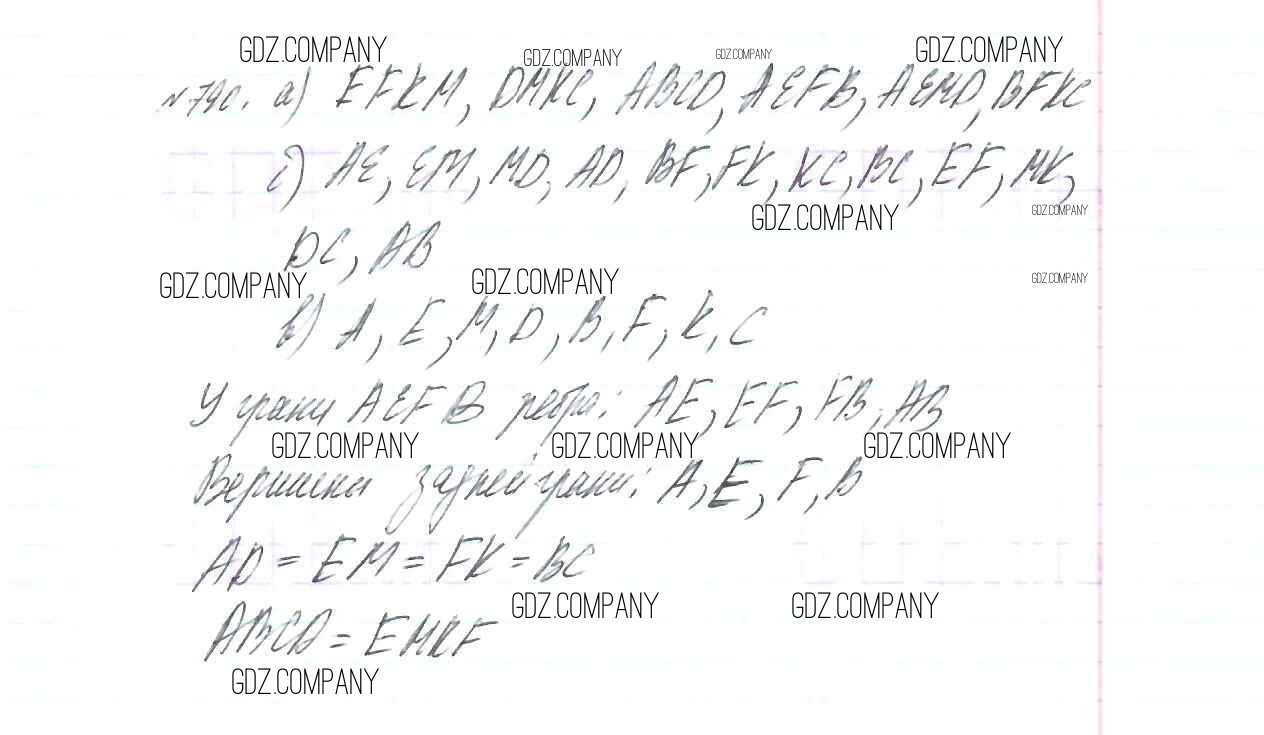 GDZ.COMPANY GDZ.COMPANY GDZ.COMPANY GDZ.COMPANY
№790. а) EFKM, DMKC, ABCD, AEFB, AEMD, BFKC
б) AE, EM, MD, AD, BF, FK, KC, BC, EF, MK,
GDZ.COMPANY GDZ.COMPANY
DC, AB
GDZ.COMPANY GDZ.COMPANY GDZ.COMPANY
в) A, E, M, D, B, F, K, C
У грани AEFB ребра: AE, EF, FB, AB
GDZ.COMPANY GDZ.COMPANY GDZ.COMPANY
Вершины задней грани: A, E, F, B
AD = EM = FK = BC
GDZ.COMPANY GDZ.COMPANY
ABCD = EMKF
GDZ.COMPANY